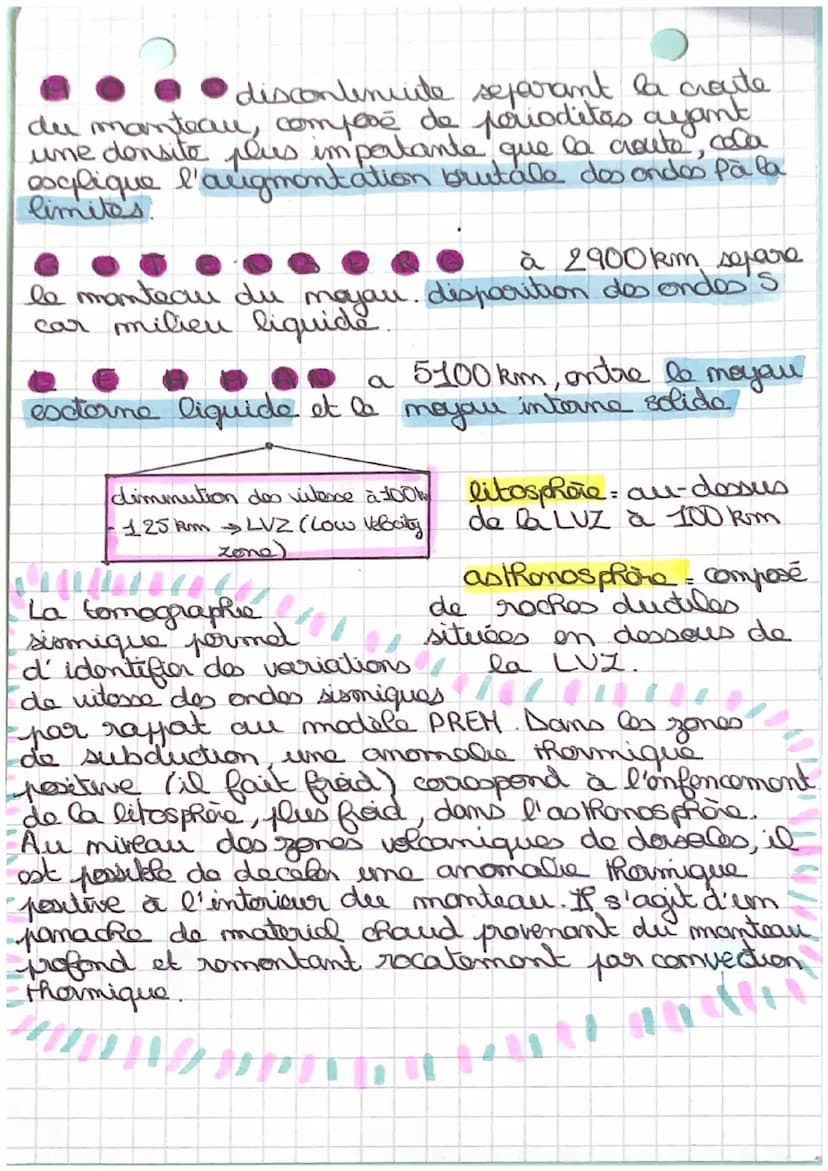 MOHO discontinuite separant la croute
du manteau, composé de périodites ayant
une densite plus importante que la croute, cela
esxplique l'augmentation brutale des ondes P à la
limites.
GUTENBERG à 2900 km separe
le manteau du noyau. disparition des ondes S
car milieu liquide.
LEHMAN a 5100 km, entre le noyau
esxterne liquide et le noyau interne solide
diminution des vitesse à 100km
- 125 km → LVZ (Low Velocity
zone)
litosphère = au-dessus
de la LVZ à 100 km
asthenosphère = composé
de roches ductiles
situées en dessous de
la LVZ.
La tomographie
sismique permet
d'identifier des variations
de vitesse des ondes sismiques
par rapport au modèle PREM. Dans les zones
de subduction, une anomalie thermique
positive (il fait froid) correspond à l'enfoncement
de la litosphère, plus froid, dans l'asthenosphère.
Au niveau des zones volcaniques de dorsales, il
est possible de deceler une anomalie thermique
positive à l'interieur du manteau. Il s'agit d'un
panache de materiel chaud provenant du manteau
profond et remontant par convection
thermique.